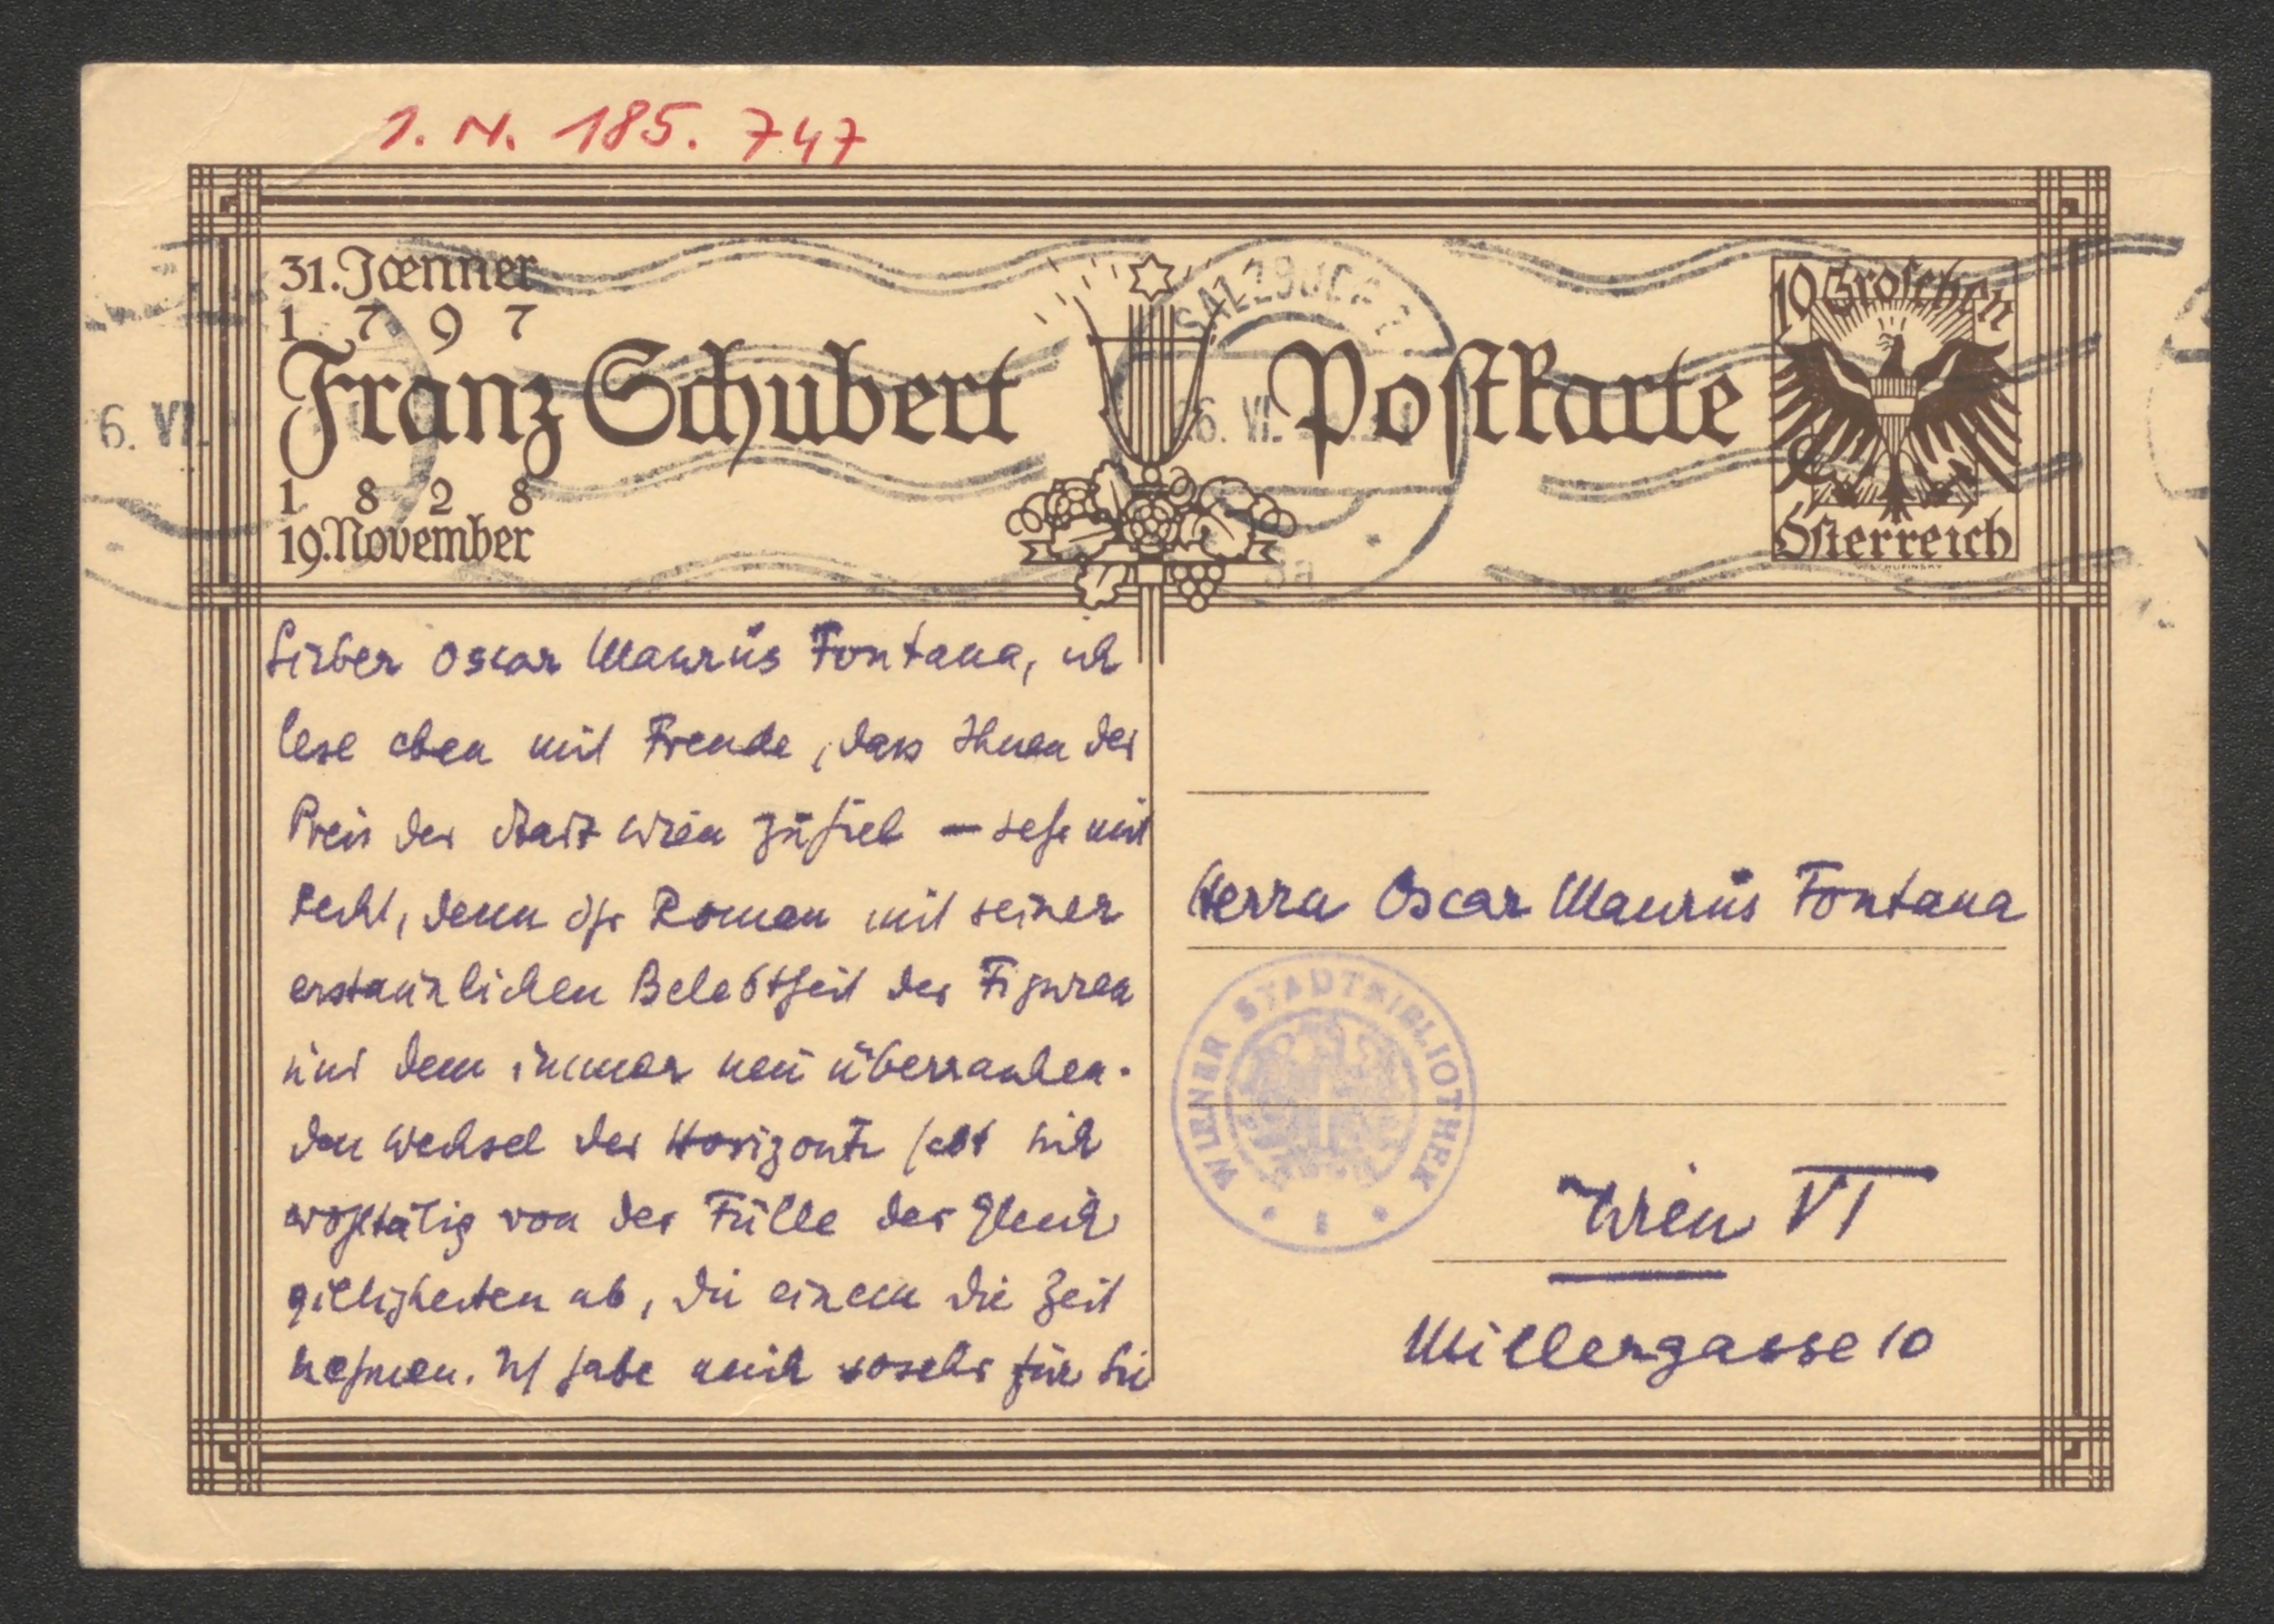 1. N. 185. 747
31. Jænner
1797
Franz Schubert Postkarte
1828
19. November
10 Groschen
Österreich
SALZBURG
6. VI.
26. VI.
Lieber Oscar Maurus Fontana, ich
lese eben mit Freude, dass Ihnen der
Preis der Stadt Wien zufiel — sehr mit
Recht, denn Ihr Roman mit seiner
erstaunlichen Belebtheit der Figuren
und dem immer neu überraschen-
den Wechsel der Horizonte hebt sich
wohltätig von der Fülle der Gleich
giltigkeiten ab, die einem die Zeit
nehmen. Ich habe mich so sehr für Sie
Herrn Oscar Maurus Fontana
WIENER STADTBIBLIOTHEK
Wien VI
Millergasse 10